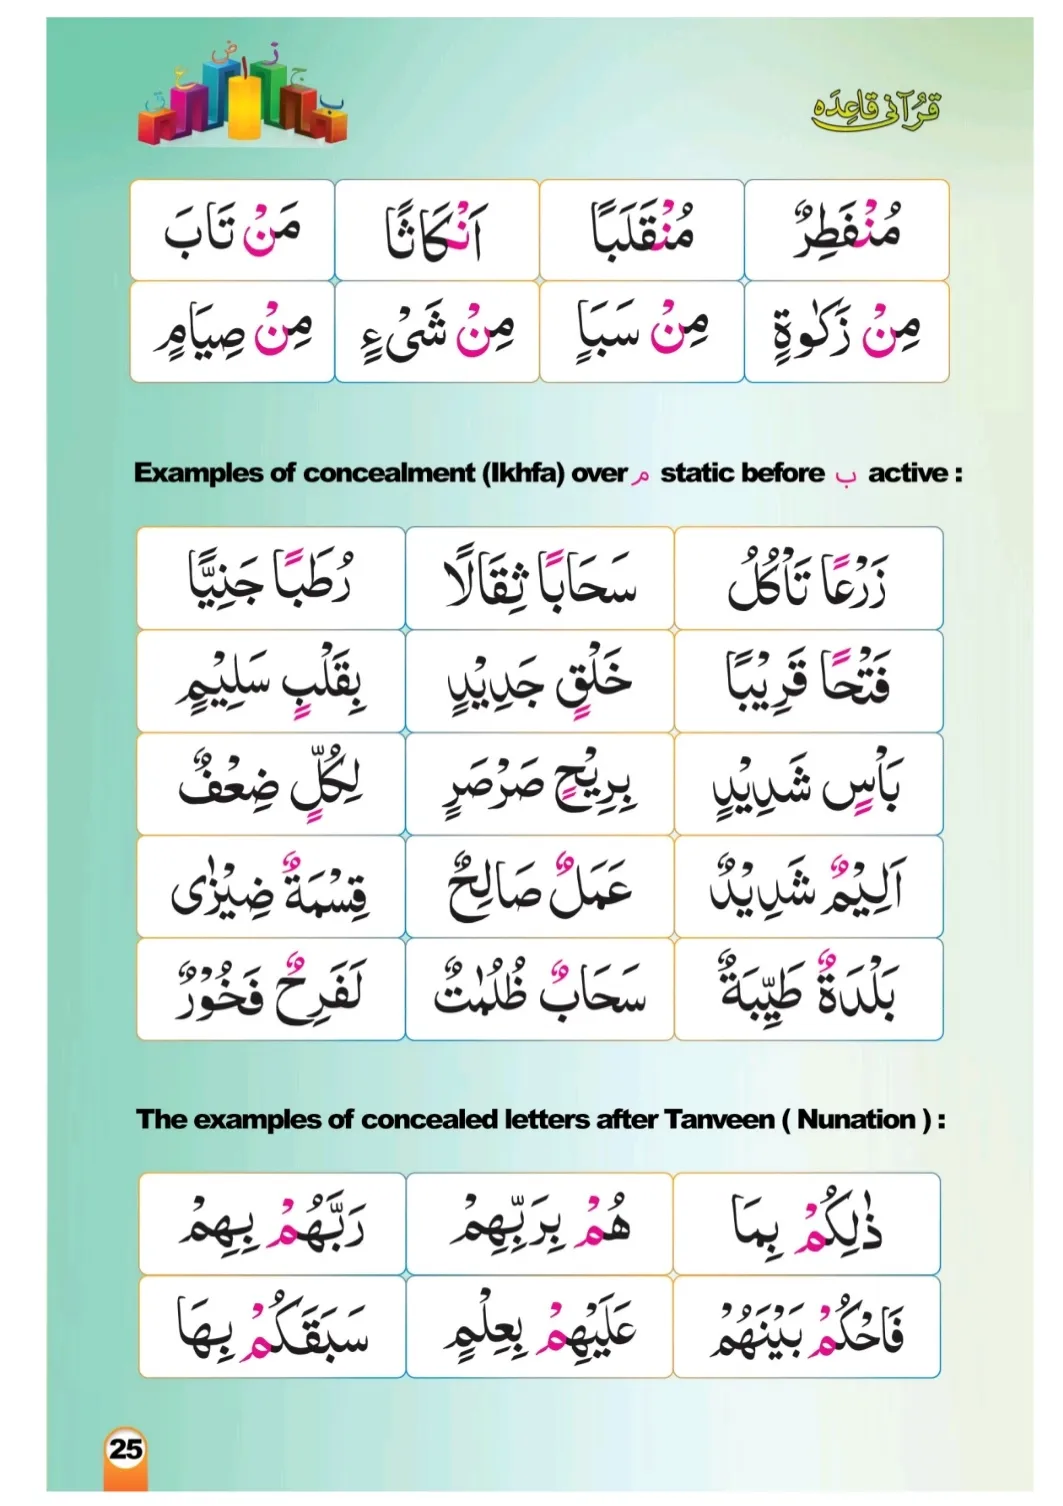 قرآنی قاعدہ
مُنْفَطِرٌ مُنْقَلَبًا اَنْكَاثًا مَنْ تَابَ
مِنْ زَكٰوةٍ مِنْ سَبَاٍ مِنْ شَیْءٍ مِنْ صِيَامٍ
Examples of concealment (Ikhfa) over م static before ب active :
زَرْعًا تَاْكُلُ سَحَابًا ثِقَالًا رُطَبًا جَنِيًّا
فَتْحًا قَرِيْبًا خَلْقٍ جَدِيْدٍ بِقَلْبٍ سَلِيْمٍ
بَاْسٍ شَدِيْدٍ بِرِيْحٍ صَرْصَرٍ لِكُلٍّ ضِعْفٌ
اَلِيْمٌ شَدِيْدٌ عَمَلٌ صَالِحٌ قِسْمَةٌ ضِيْزٰى
بَلْدَةٌ طَيِّبَةٌ سَحَابٌ ظُلُمٰتٌ لَفَرِحٌ فَخُوْرٌ
The examples of concealed letters after Tanveen ( Nunation ) :
ذٰلِكُمْ بِمَا هُمْ بِرَبِّهِمْ رَبَّهُمْ بِهِمْ
فَاحْكُمْ بَيْنَهُمْ عَلَيْهِمْ بِعِلْمٍ سَبَقَكُمْ بِهَا
25